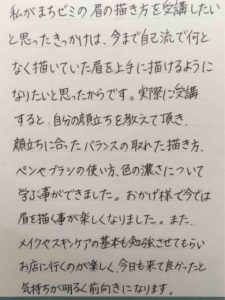 私がまちゼミの眉の描き方を受講したい
と思ったきっかけは、今まで自己流で何と
なく描いていた眉を上手に描けるように
なりたいと思ったからです。実際に受講
すると、自分の顔立ちを教えて頂き、
顔立ちに合ったバランスの取れた描き方、
ペンやブラシの使い方、色の濃さについて
学ぶ事ができました。おかげ様で今では
眉を描く事が楽しくなりました。また、
メイクやスキンケアの基本も勉強させてもらい
お店に行くのが楽しく、今日も来て良かったと
気持ちが明るく前向きになります。